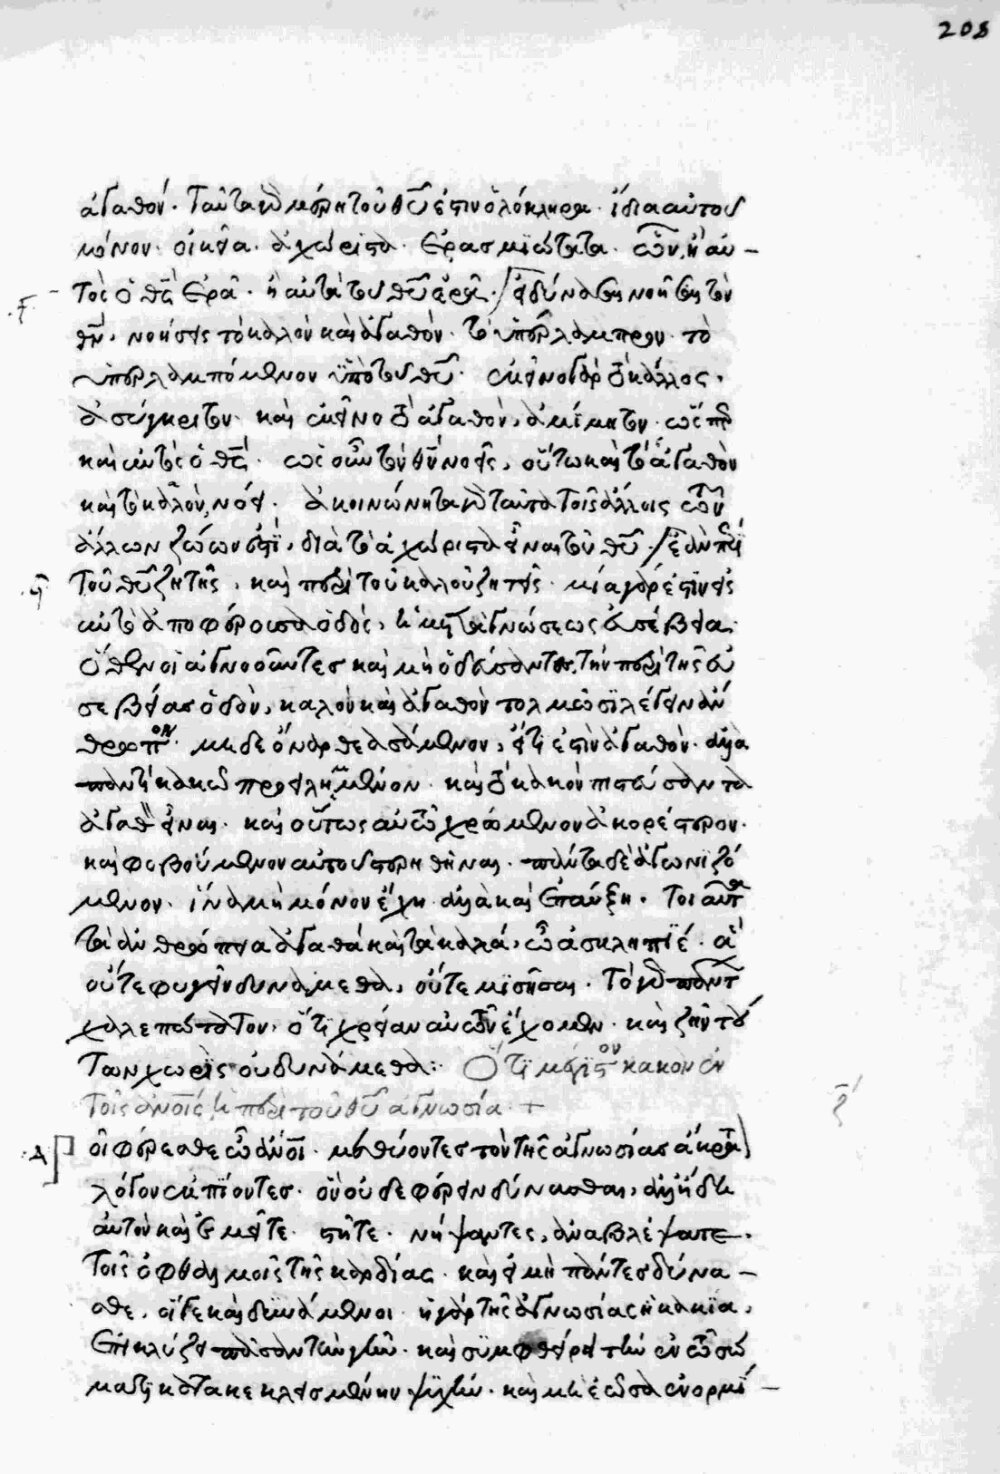 208
ἀγαθόν. Ταῦτα τὰ μέρη τοῦ θῦ ἐστιν ὁλόκληρα. ἴδια αὐτοῦ
μόνου. οἰκεῖα. ἀχώριστα. ἐρασμιώτατα. ὧν, ἢ αὐ-
τὸς ὁ θς ἐρᾷ. ἢ αὐτὰ τοῦ θῦ ἐρᾷ. εἰ δύνασαι νοῆσαι τὸν
θν, νοήσεις τὸ καλὸν καὶ ἀγαθόν. τὸ ὑπέρλαμπρον. τὸ
ὑπερλαμπόμενον ὑπὸ τοῦ θῦ. ἐκεῖνο γὰρ τὸ κάλλος,
ἀσύγκριτον. καὶ ἐκεῖνο τὸ ἀγαθὸν, ἀμίμητον. ὥσπερ
καὶ αὐτὸς ὁ θς. ὡς οὖν τὸν θν νοεῖς, οὕτω καὶ τὸ ἀγαθὸν
καὶ τὸ καλὸν νόει. ἀκοινώνητα γὰρ ταῦτα τοῖς ἄλλοις τῶν
ἄλλων ζώων ἐστί, διὰ τὸ ἀχώριστα εἶναι τοῦ θῦ. ἐὰν περὶ
τοῦ θῦ ζητῇς, καὶ περὶ τοῦ καλοῦ ζητεῖς. μία γάρ ἐστιν εἰς
αὐτὸ ἀποφέρουσα ὁδός, ἡ μετὰ γνώσεως εὐσέβεια.
ὅθεν οἱ ἀγνοοῦντες καὶ μὴ ὁδεύσαντες τὴν περὶ τῆς εὐ
σεβείας ὁδὸν, καλὸν καὶ ἀγαθὸν τολμῶσι λέγειν ἄν
θρωπον. μηδὲ ὄναρ θεασάμενον, εἴ τι ἐστὶν ἀγαθὸν. ἀλλὰ
παντὶ κακῷ προειλημμένον. καὶ τὸ κακὸν πιστεύσαντα
ἀγαθὸν εἶναι. καὶ οὕτως αὐτῷ χρώμενον ἀκορέστως.
καὶ φοβούμενον αὐτοῦ στερηθῆναι. πάντα δὲ ἀγωνιζό
μενον. ἵνα μὴ μόνον ἔχῃ ἀλλὰ καὶ ἐπαύξῃ. Τοιαῦτα
τὰ ἀνθρώπεια ἀγαθὰ καὶ τὰ καλά, ὦ ἀσκληπιέ. ἃ
οὔτε φυγεῖν δυνάμεθα, οὔτε μισῆσαι. Τὸ γὰρ πάντων
χαλεπώτατον, ὅτι χρείαν αὐτῶν ἔχομεν. καὶ ζῆν τού
των χωρὶς οὐ δυνάμεθα: Ὅτι μέγιστον κακὸν ἐν
τοῖς ἀνοις, ἡ περὶ τοῦ θῦ ἀγνωσία. +
ποῖ φέρεσθε ὦ ἄνοι. μεθύοντες τὸν τῆς ἀγνωσίας ἄκρατον
λόγον ἐκπιόντες. ὃν οὐδὲ φέρειν δύνασθαι, ἀλλ' ἤδη
αὐτὸν καὶ ἐμεῖτε. στῆτε. νήψαντες, ἀναβλέψατε.
τοῖς ὀφθαλμοῖς τῆς καρδίας. καὶ εἰ μὴ πάντες δύνα-
σθε, οἵ γε καὶ δυνάμενοι. ἡ γὰρ τῆς ἀγνωσίας ἡ κακία,
ἐπικλύζει πᾶσαν τὴν γῆν. καὶ συμφθείρει τὴν ἐν τῷ σώ
ματι κατακεκλεισμένην ψυχήν. καὶ μὴ ἐῶσα ἐνορμί-